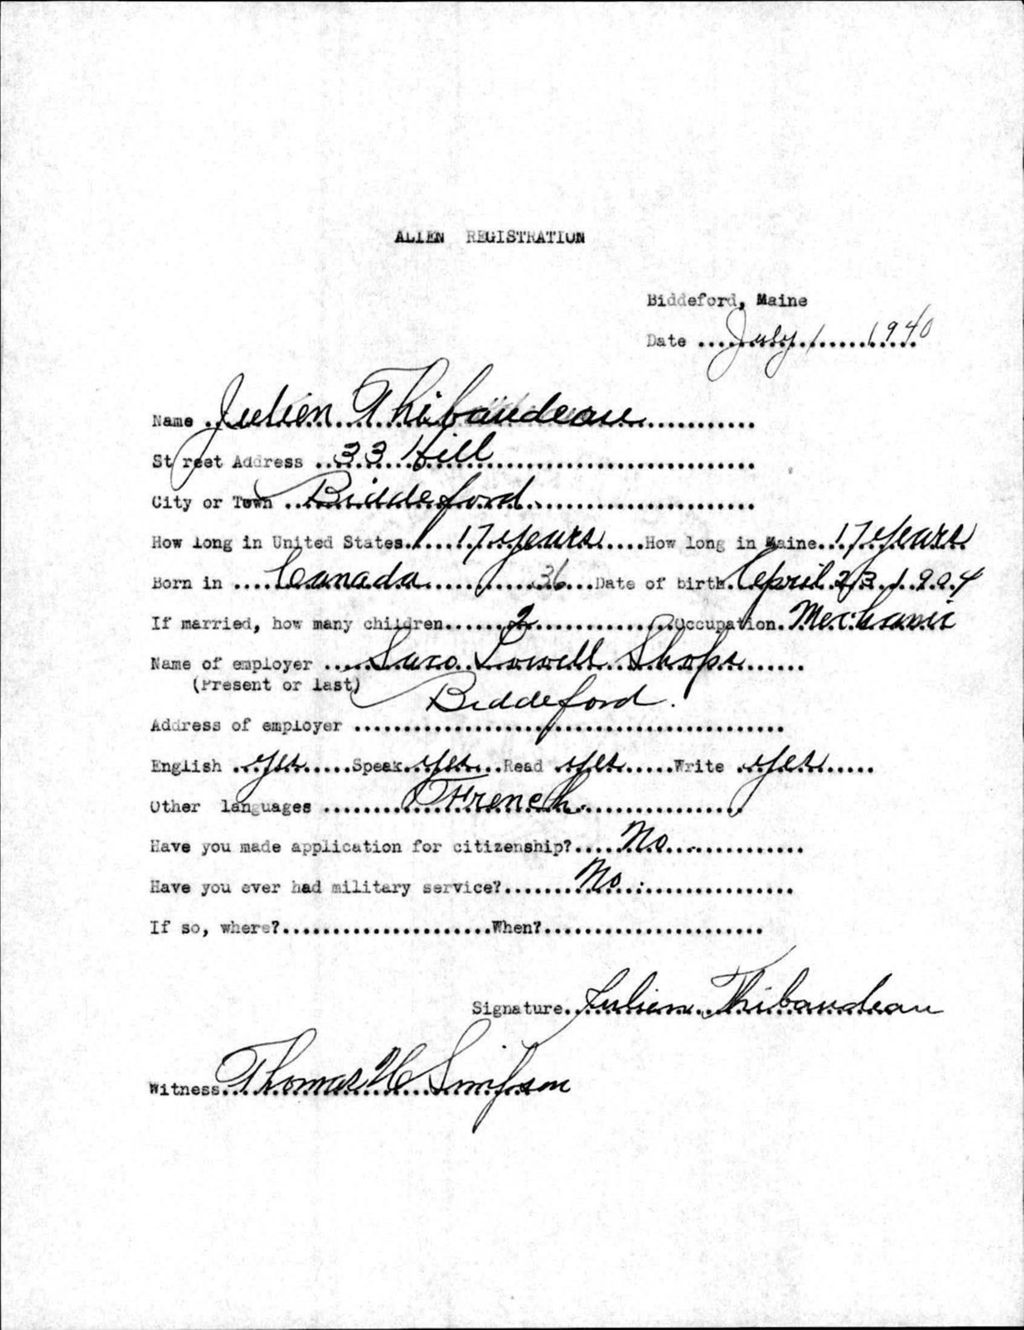 ALIEN REGISTRATION
Biddeford, Maine
Date July 1 1940
Name Julien Thibaudeau
Street Address 33 Hill
City or Town Biddeford
How long in United States 17 years How long in Maine 17 years
Born in Canada 36 Date of birth April 23 1904
If married, how many children 2 Occupation Mechanic
Name of employer Saco Lowell Shops
(Present or last)
Biddeford.
Address of employer
English yes Speak yes Read yes Write yes
Other languages French.
Have you made application for citizenship? No
Have you ever had military service? No
If so, where? When?
Signature Julien Thibaudeau
Witness Thomas H Simpson